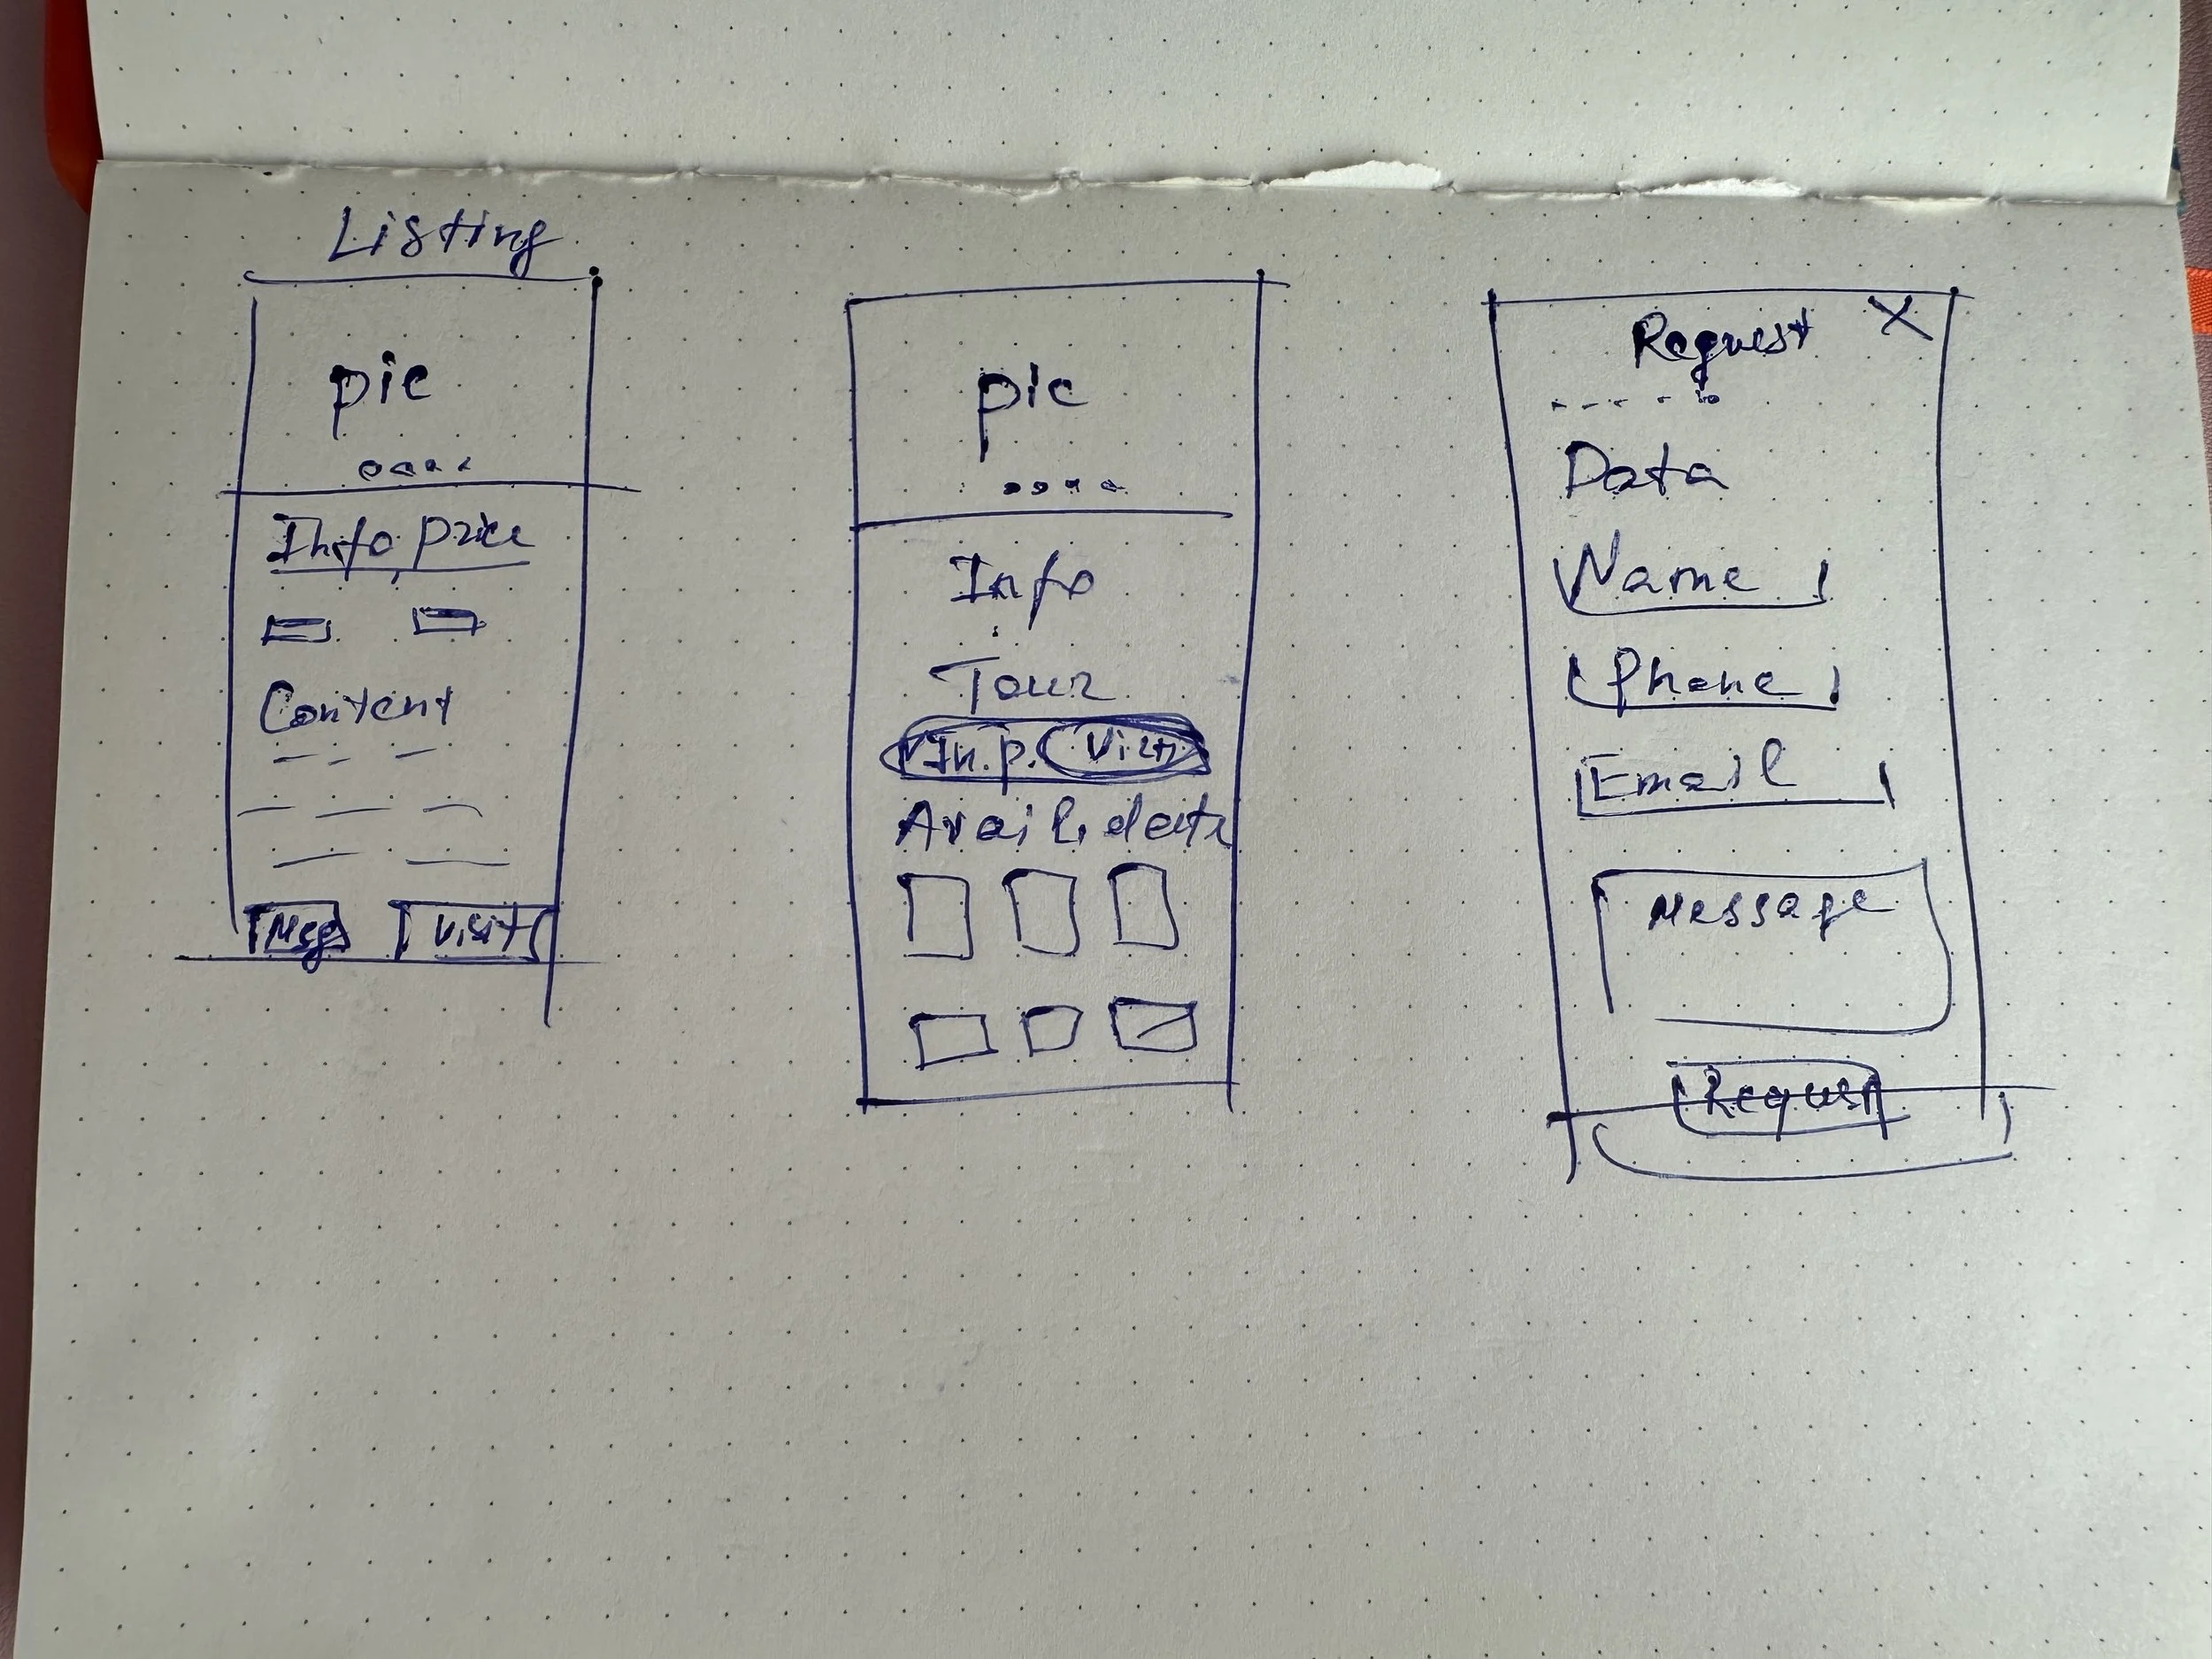 Listing
pic
Info, price
Content
Msg Visit
pic
Info
Tour
In.p.
Avail. date
Request X
Data
Name
Phone
Email
Message
Request